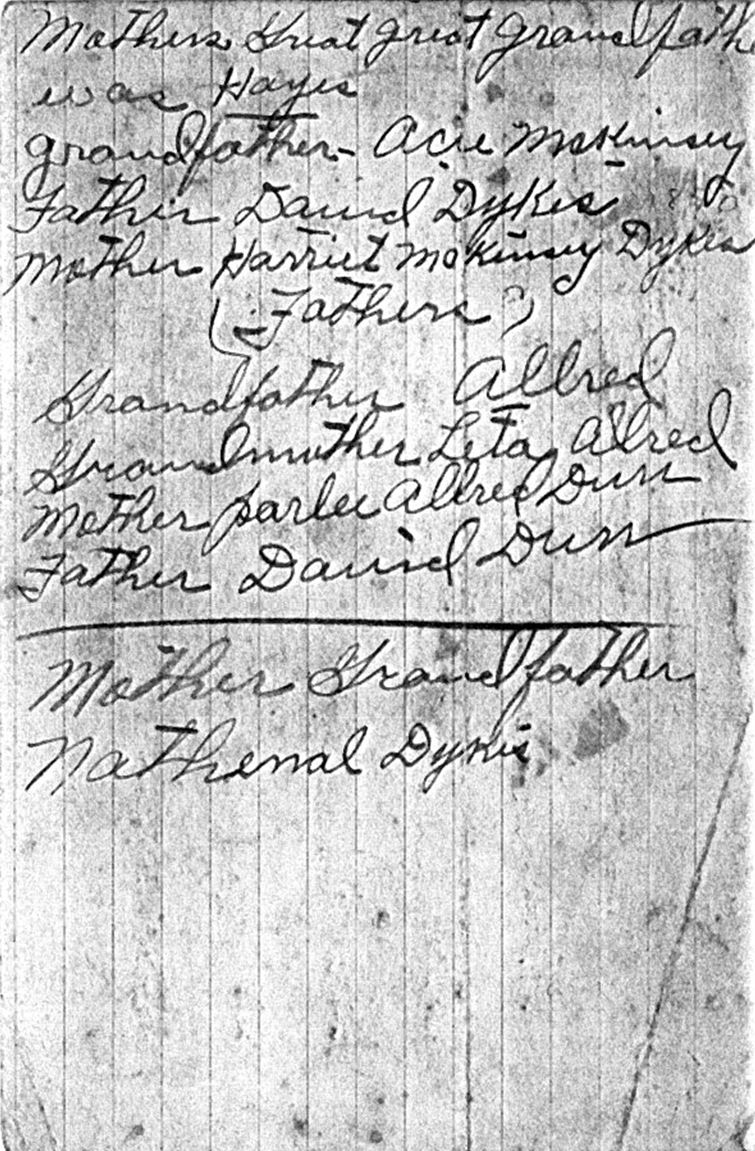 Mothers Great great grandfath
was Hayes
grandfather - Acie McKinsey
Father David Dykes
Mother Harriet McKinsey Dykes
(Fathers)
Grandfather Allred
Grandmother Leta Allred
Mother parlee Allred Durr
Father David Durr
Mother Grandfather
Nathenal Dykes